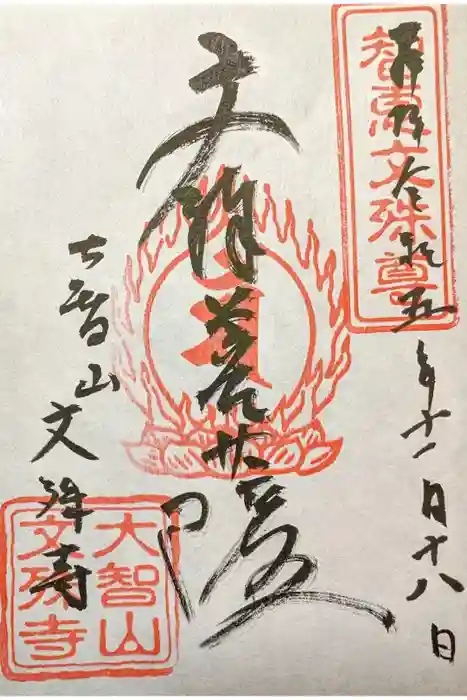 奉拝令和五年十一月十八日
智恵文殊尊
文殊菩薩
大智山
文殊寺
大智山
文殊寺